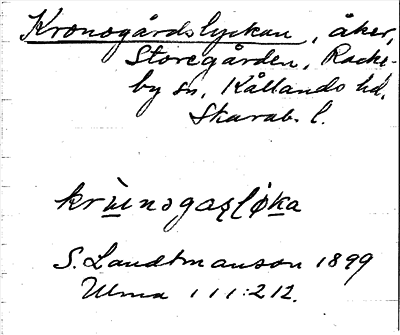 Kronogårdslyckan, åker,
Storegården, Racke-
by sn, Kållands hd,
Skarab. l.
krùnəgaʂḷøka
S. Landtmanson 1899
Ulma 111:212.